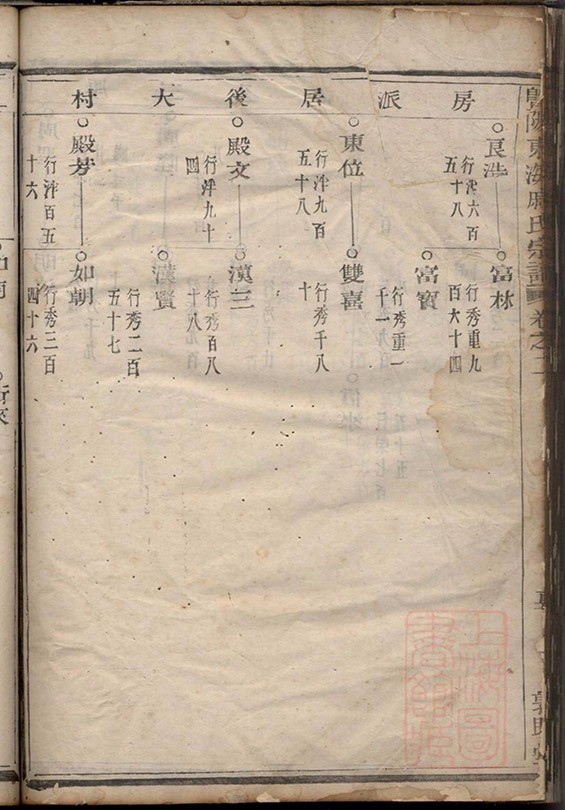 房派居後大村
良浩
行泮六百五十八
富林
行秀重九百六十四
富寶
行秀重一千一九百
東位
行泮九百五十八
雙喜
行秀千八十
殿文
行泮九十四
漢三
行秀百八十八
漢賢
行秀二百五十七
殿芳
行泮百五十六
如朝
行秀三百四十六
東 氏宗譜 卷之二
上海圖書館藏